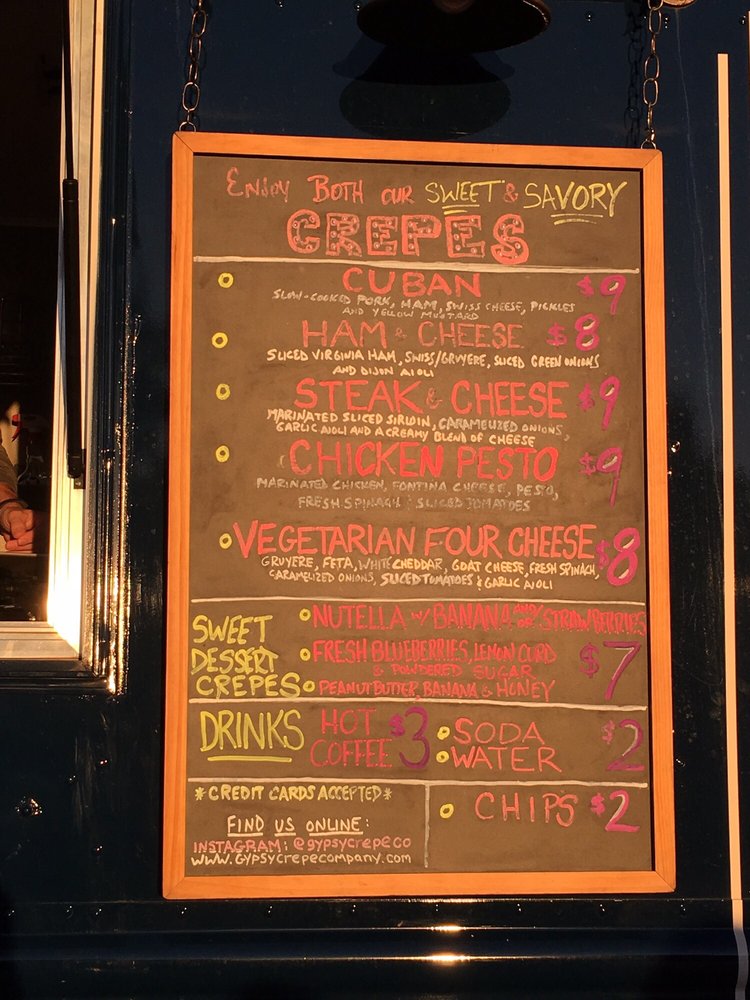 ENJOY BOTH OUR SWEET & SAVORY
CREPES
CUBAN $9
SLOW-COOKED PORK, HAM, SWISS CHEESE, PICKLES
AND YELLOW MUSTARD
HAM & CHEESE $8
SLICED VIRGINIA HAM, SWISS/GRUYERE, SLICED GREEN ONIONS
AND DIJON AIOLI
STEAK & CHEESE $9
MARINATED SLICED SIRLOIN, CARAMELIZED ONIONS,
GARLIC AIOLI AND A CREAMY BLEND OF CHEESE
CHICKEN PESTO $9
MARINATED CHICKEN, FONTINA CHEESE, PESTO,
FRESH SPINACH & SLICED TOMATOES
VEGETARIAN FOUR CHEESE $8
GRUYERE, FETA, WHITE CHEDDAR, GOAT CHEESE, FRESH SPINACH,
CARAMELIZED ONIONS, SLICED TOMATOES & GARLIC AIOLI
SWEET
DESSERT
CREPES
NUTELLA W/ BANANA AND/OR STRAWBERRIES
FRESH BLUEBERRIES, LEMON CURD
& POWDERED SUGAR
PEANUT BUTTER, BANANA & HONEY
$7
DRINKS
HOT
COFFEE $3
SODA
WATER
$2
*CREDIT CARDS ACCEPTED*
FIND US ONLINE:
INSTAGRAM: @gypsycrepeco
www.Gypsycrepecompany.com
CHIPS $2